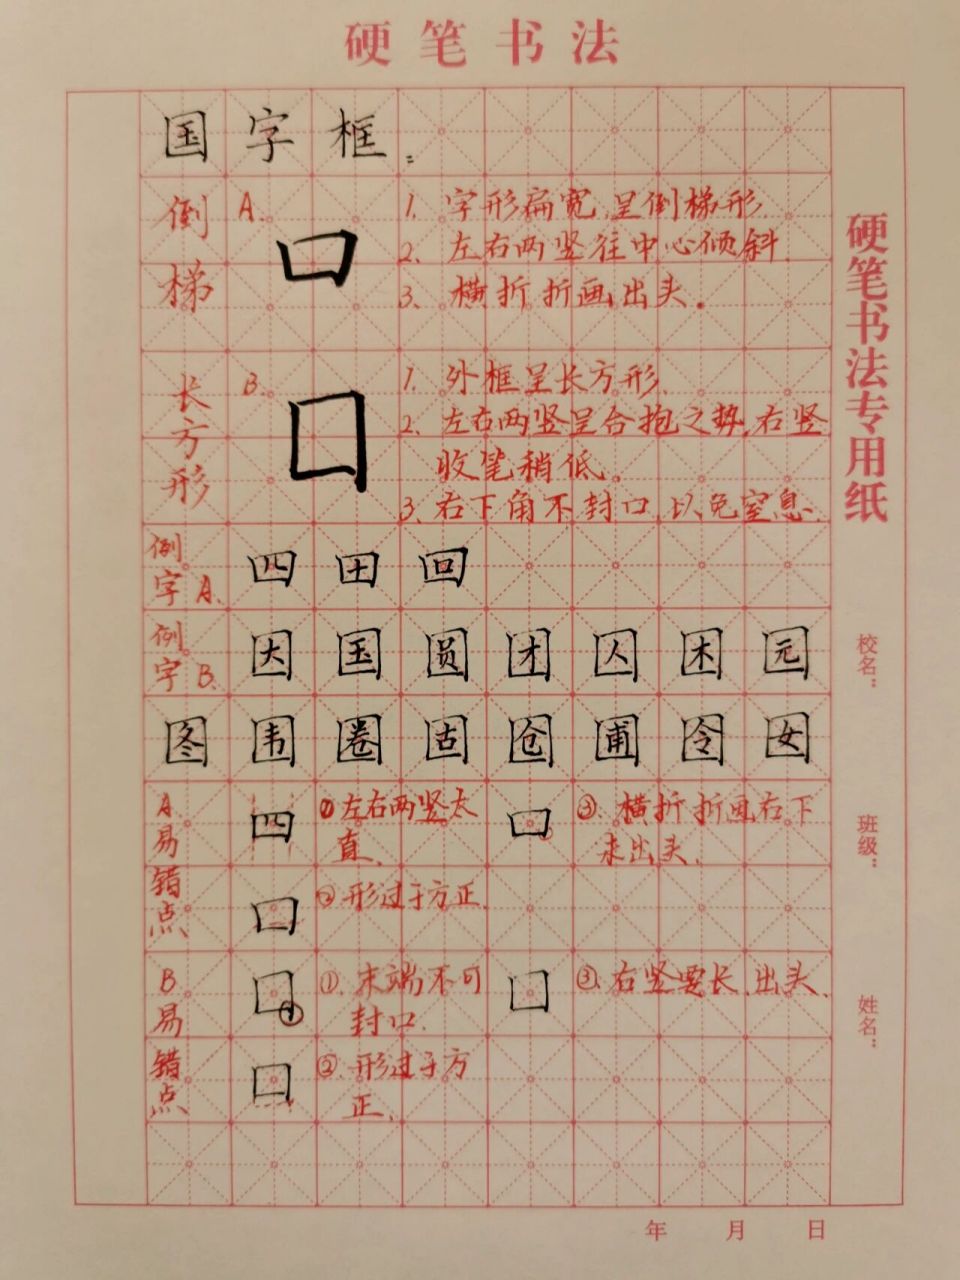 硬笔书法
国字框:
倒梯 A. 口
1. 字形扁宽,呈倒梯形.
2. 左右两竖往中心倾斜.
3. 横折折画出头.
长方形 B. 口
1. 外框呈长方形.
2. 左右两竖呈合抱之势,右竖
收笔稍低。
3. 右下角不封口,以免窒息.
例字A. 四 田 回
例字B. 因 国 圆 团 囚 困 园
图 围 圈 固 囵 圃 囹 囡
A易错点 四 ①左右两竖太
直.
口 ③. 横折折画右下
未出头.
口 ②形过于方正.
B易错点 口 ①. 末端不可
封口.
口 ③. 右竖要长,出头.
口 ②. 形过于方
正.
硬笔书法专用纸
校名:
班级:
姓名:
年 月 日